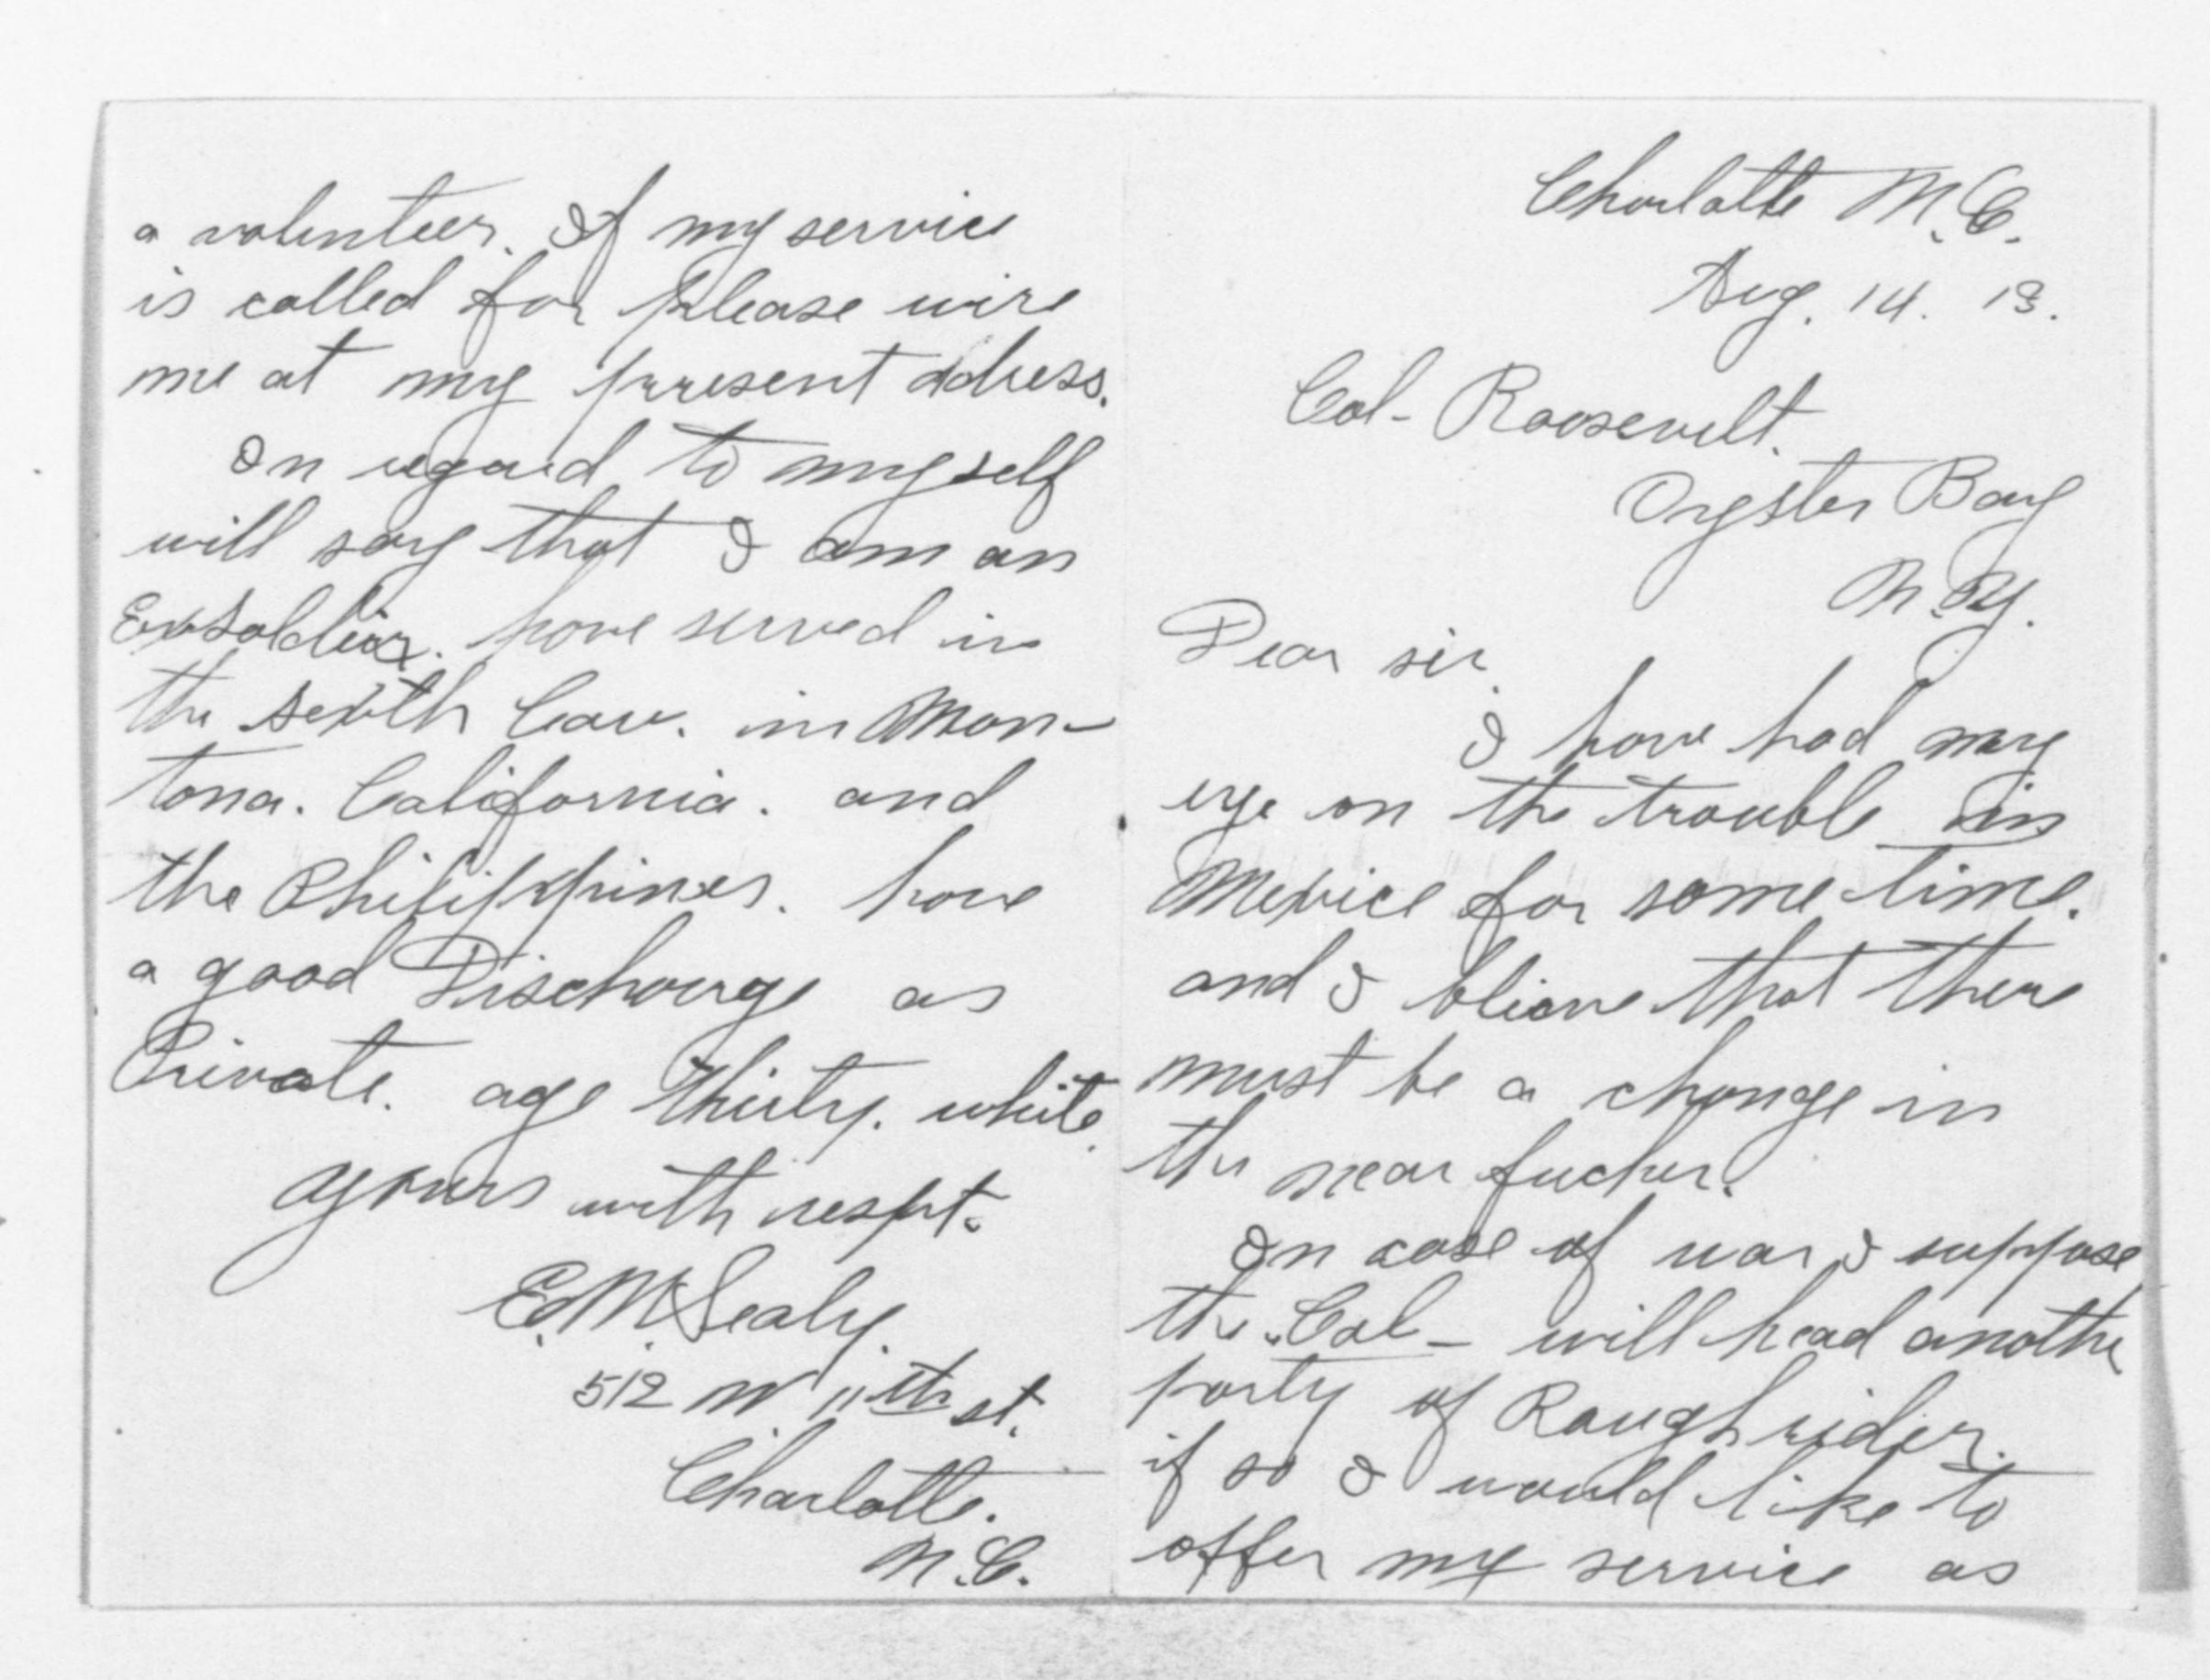 Charlotte N.C.
Aug. 14. 13.
Col- Roosevelt.
Oyster Bay
N.Y.
Dear sir.
I have had my
eye on the trouble in
Mexico for some time.
and I bliave that there
must be a change in
the near fucher.
In case of war I suppose
the Col- will head anothe
party of Rough rider.
if so I would like to
offer my service as
a volunteer. If my service
is called for please wire
me at my present adress.
In regard to myself
will say that I am an
Exsoldier. have served in
the sexth Cav. in Mon-
tana. California. and
the Philippines. have
a good Discharge as
Private. age thirty. white.
Yours with respt.
E.M. Sealy.
512 N. 11th st.
Charlotte.
N.C.